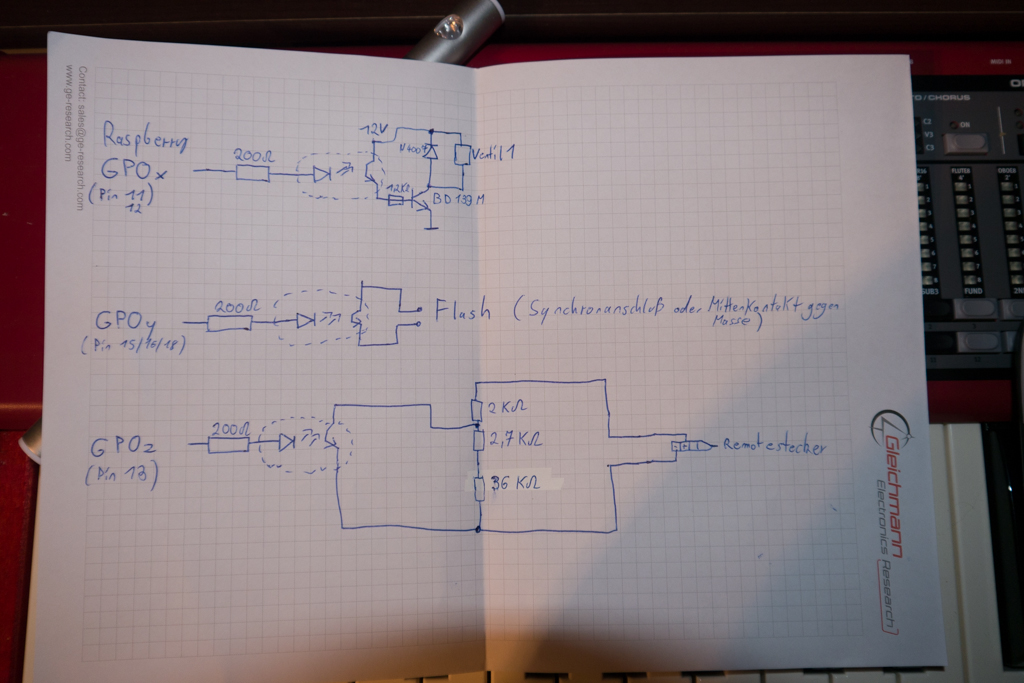 Contact: sales@ge-research.com
www.ge-research.com
Raspberry
GPOx
(Pin 11)
12
200Ω
12V
V4001
Ventil 1
12KΩ
BD 139 M
GPOy
(Pin 15/16/18)
200Ω
Flash (Synchronanschluß oder Mittenkontakt gegen
Masse)
GPOz
(Pin 13)
200Ω
2 KΩ
2,7 KΩ
36 KΩ
Remotestecker
Gleichmann
Electronics Research
MIDI IN
/CHORUS
C2
V3
C3
ON
FLUTE
4'
OBOE
SUB3
FUND